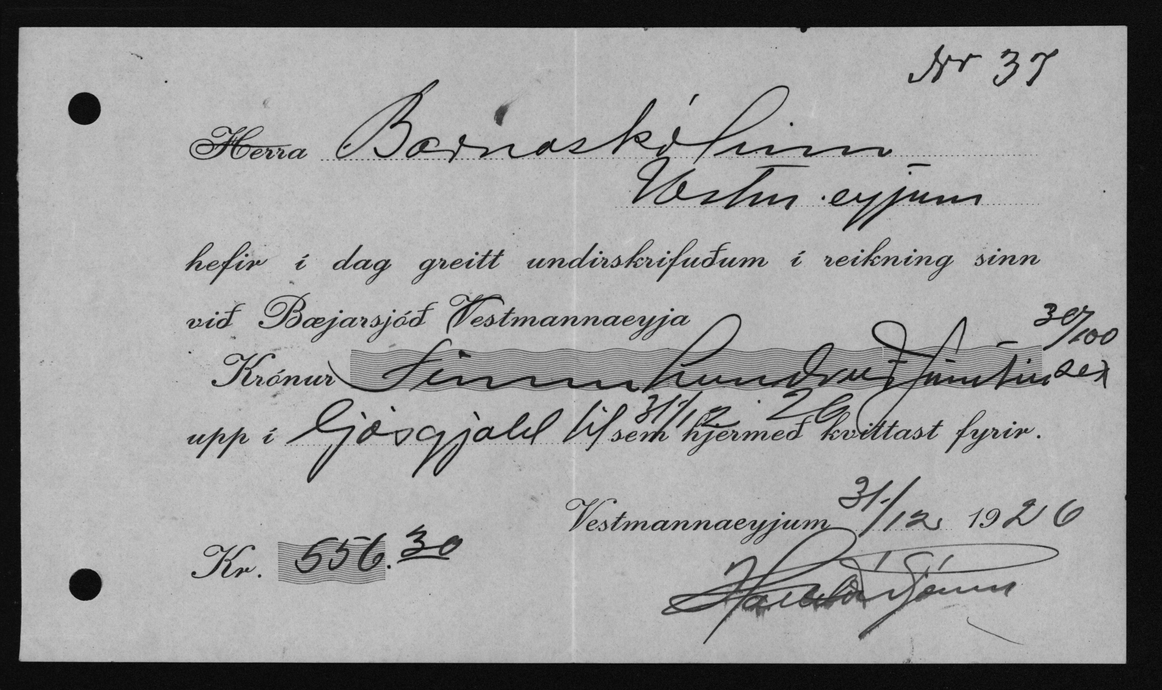 Nr 37
Herra Barnaskólinn
Vestm.eyjum
hefir í dag greitt undirskrifuðum í reikning sinn
við Bæjarsjóð Vestmannaeyja
30/100
Krónur Fimmhundruðfimtíu sex
upp í ljósgjald til 31/12 26 sem hjermeð kvittast fyrir.
Vestmannaeyjum 31/12 1926
Kr. 556.30